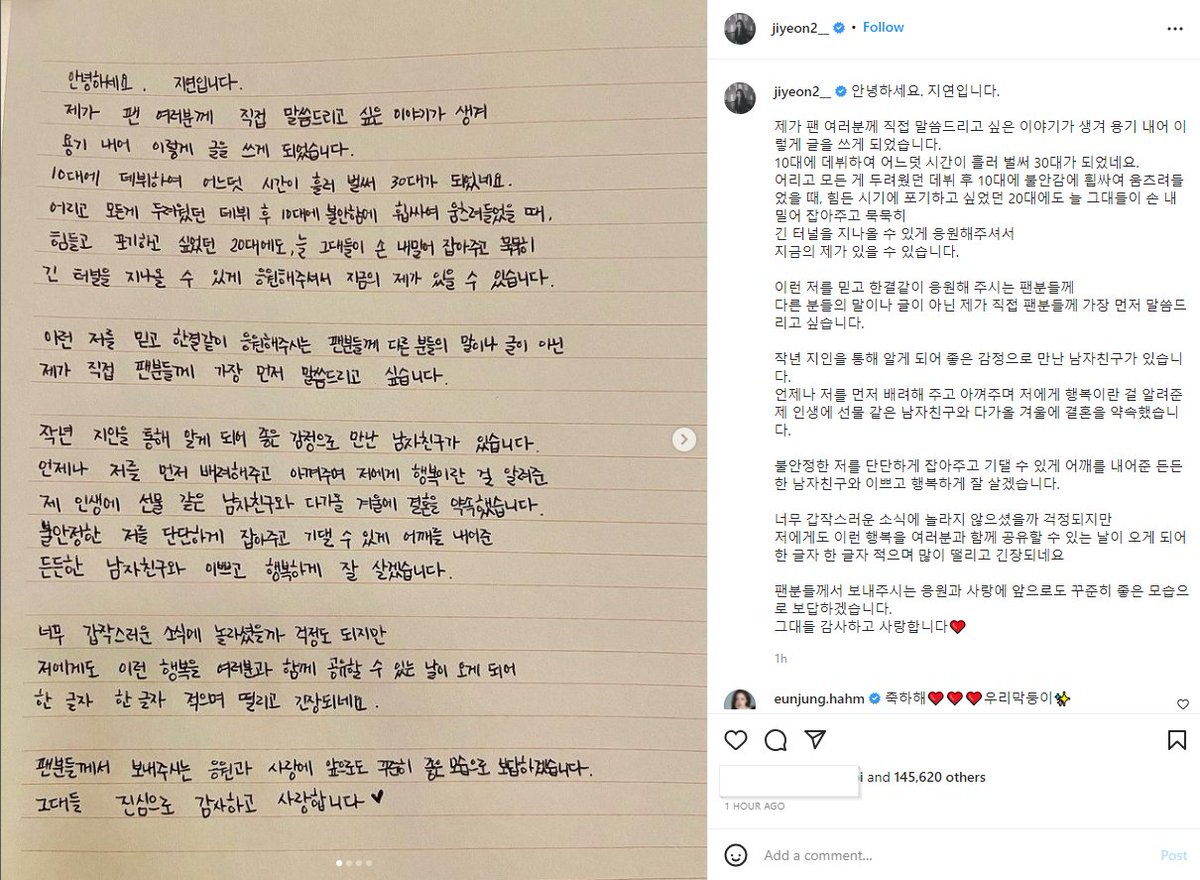 안녕하세요. 지연입니다.
제가 팬 여러분께 직접 말씀드리고 싶은 이야기가 생겨
용기 내어 이렇게 글을 쓰게 되었습니다.
10대에 데뷔하여 어느덧 시간이 흘러 벌써 30대가 되었네요.
어리고 모든게 두려웠던 데뷔 후 10대에 불안함에 휩싸여 움츠려들었을 때,
힘들고 포기하고 싶었던 20대에도, 늘 그대들이 손 내밀어 잡아주고 묵묵히
긴 터널을 지나올 수 있게 응원해주셔서 지금의 제가 있을 수 있습니다.
이런 저를 믿고 한결같이 응원해주시는 팬분들께 다른 분들의 말이나 글이 아닌
제가 직접 팬분들께 가장 먼저 말씀드리고 싶습니다.
작년 지인을 통해 알게 되어 좋은 감정으로 만난 남자친구가 있습니다.
언제나 저를 먼저 배려해주고 아껴주며 저에게 행복이란 걸 알려준
제 인생에 선물 같은 남자친구와 다가올 겨울에 결혼을 약속했습니다.
불안정한 저를 단단하게 잡아주고 기댈 수 있게 어깨를 내어준
든든한 남자친구와 이쁘고 행복하게 잘 살겠습니다.
너무 갑작스러운 소식에 놀라셨을까 걱정도 되지만
저에게도 이런 행복을 여러분과 함께 공유할 수 있는 날이 오게 되어
한 글자 한 글자 적으며 떨리고 긴장되네요.
팬분들께서 보내주시는 응원과 사랑에 앞으로도 꾸준히 좋은 모습으로 보답하겠습니다.
그대들 진심으로 감사하고 사랑합니다 ♥
jiyeon2__ • Follow
jiyeon2__ 안녕하세요. 지연입니다.
제가 팬 여러분께 직접 말씀드리고 싶은 이야기가 생겨 용기 내어 이
렇게 글을 쓰게 되었습니다.
10대에 데뷔하여 어느덧 시간이 흘러 벌써 30대가 되었네요.
어리고 모든 게 두려웠던 데뷔 후 10대에 불안감에 휩싸여 움츠려들
었을 때, 힘든 시기에 포기하고 싶었던 20대에도 늘 그대들이 손 내
밀어 잡아주고 묵묵히
긴 터널을 지나올 수 있게 응원해주셔서
지금의 제가 있을 수 있습니다.
이런 저를 믿고 한결같이 응원해 주시는 팬분들께
다른 분들의 말이나 글이 아닌 제가 직접 팬분들께 가장 먼저 말씀드
리고 싶습니다.
작년 지인을 통해 알게 되어 좋은 감정으로 만난 남자친구가 있습니
다.
언제나 저를 먼저 배려해 주고 아껴주며 저에게 행복이란 걸 알려준
제 인생에 선물 같은 남자친구와 다가올 겨울에 결혼을 약속했습니
다.
불안정한 저를 단단하게 잡아주고 기댈 수 있게 어깨를 내어준 든든
한 남자친구와 이쁘고 행복하게 잘 살겠습니다.
너무 갑작스러운 소식에 놀라지 않으셨을까 걱정되지만
저에게도 이런 행복을 여러분과 함께 공유할 수 있는 날이 오게 되어
한 글자 한 글자 적으며 많이 떨리고 긴장되네요
팬분들께서 보내주시는 응원과 사랑에 앞으로도 꾸준히 좋은 모습으
로 보답하겠습니다.
그대들 감사하고 사랑합니다❤️
1h
eunjung.hahm 축하해❤️❤️❤️우리막둥이✨
i and 145,620 others
1 HOUR AGO
Add a comment...
Post